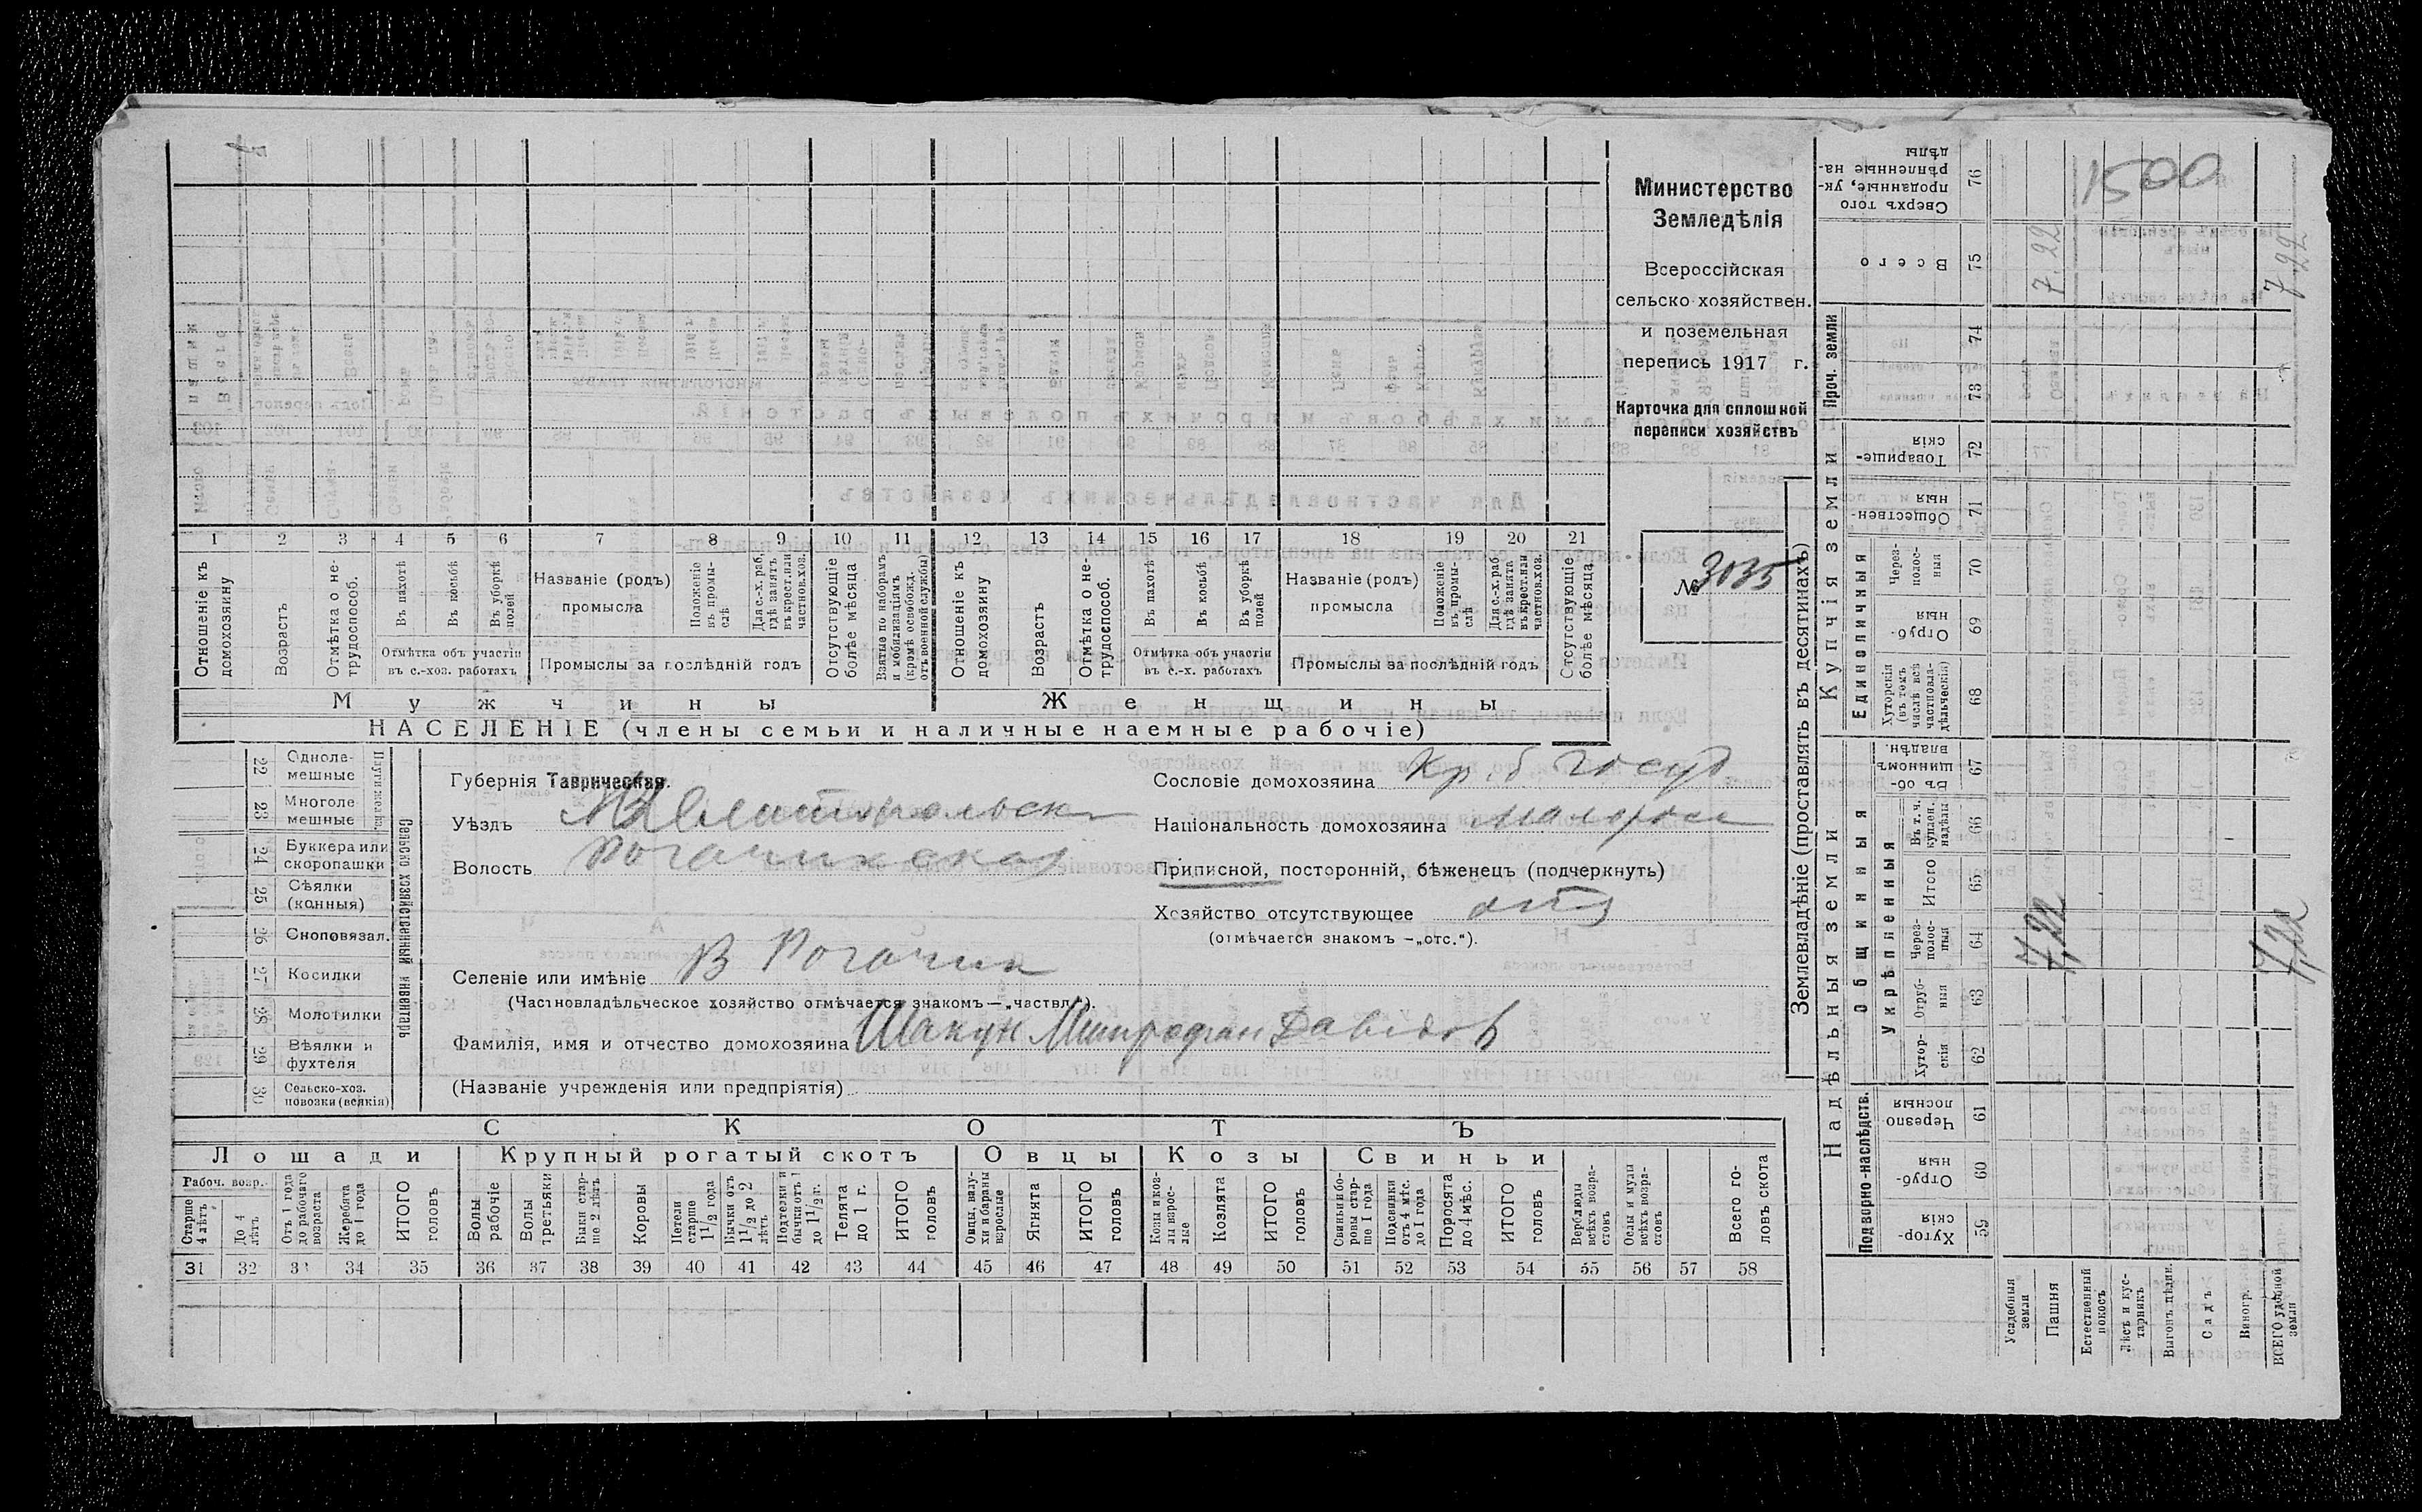 Министерство
Земледѣлія
Всероссійская
сельско хозяйствен.
и поземельная
перепись 1917 г.
Карточка для сплошной
переписи хозяйствъ
№ 3035
1 2 3 4 5 6 7 8 9 10 11 12 13 14 15 16 17 18 19 20 21
Отношеніе къ домохозяину
Возрастъ
Отмѣтка о не-трудоспособ.
Въ пахотѣ
Въ косьбѣ
Въ уборкѣ полей
Отмѣтка объ участіи
въ с.-хоз. работахъ
Названіе (родъ)
промысла
Положеніе въ промы-слѣ
Для с.-х. раб. гдѣ занятъ въ крест. или частнов. хоз.
Промыслы за послѣдній годъ
Отсутствующіе болѣе мѣсяца
Взятые по наборамъ и мобилизаціямъ (кромѣ освобожд. отъ военной службы)
Отношеніе къ домохозяину
Возрастъ
Отмѣтка о не-трудоспособ.
Въ пахотѣ
Въ косьбѣ
Въ уборкѣ полей
Отмѣтка объ участіи
въ с.-х. работахъ
Названіе (родъ)
промысла
Положеніе въ промы-слѣ
Для с.-х. раб. гдѣ занята въ крест. или частнов. хоз.
Промыслы за послѣдній годъ
Отсутствующіе болѣе мѣсяца
Мужчины Женщины
НАСЕЛЕНІЕ (члены семьи и наличные наемные рабочіе)
22 Одноле-мешные
23 Многоле мешные
24 Буккера или скоропашки
25 Сѣялки (конныя)
26 Сноповязал.
27 Косилки
28 Молотилки
29 Вѣялки и фухтеля
30 Сельско-хоз. повозки (всякія)
Сельско хозяйственный инвентарь
Губернія Таврическая.
Уѣздъ Мелитопольск
Волость Рогачикская
Селеніе или имѣніе В Рогачик
(Частновладѣльческое хозяйство отмѣчается знакомъ—„частвл.“).
Фамилія, имя и отчество домохозяина Шакун Митрофан Давидов
(Названіе учрежденія или предпріятія)
Сословіе домохозяина Кр. б Госуд
Національность домохозяина малоросс
Приписной, посторонній, бѣженецъ (подчеркнуть)
Хозяйство отсутствующее отс
(отмѣчается знакомъ —„отс.“).
СКОТЪ
Лошади Крупный рогатый скотъ Овцы Козы Свиньи
Рабоч. возр.
Старше 4 лѣтъ
До 4 лѣтъ
Отъ 1 года до рабочаго возраста
Жеребята до 1 года
ИТОГО головъ
Волы рабочіе
Волы третьяки
Быки стар-ше 2 лѣтъ
Коровы
Нетели старше 1 1/2 года
Бычки отъ 1 1/2 до 2 лѣтъ
Подтелки и бычки отъ 1 до 1 1/2 г.
Телята до 1 г.
ИТОГО головъ
Овцы, валу-хи и бараны взрослые
Ягнята
ИТОГО головъ
Козы и коз-лы взрос-лые
Козлята
ИТОГО головъ
Свиньи и бо-ровы стар-ше 1 года
Подсвинки отъ 4 мѣс. до 1 года
Поросята до 4 мѣс.
ИТОГО головъ
Верблюды всѣхъ возра-стовъ
Ослы и мулы всѣхъ возра-стовъ
Всего го-ловъ скота
31 32 33 34 35 36 37 38 39 40 41 42 43 44 45 46 47 48 49 50 51 52 53 54 55 56 57 58
Землевладѣніе (проставлять въ десятинахъ)
Купчія земли
Проч. земли
Единоличныя
Надѣльныя земли
Общинныя
Укрѣпленныя
Подворно-наслѣдств.
Сверхъ того проданные, ук-рѣпленные на-дѣлы 76
Всего 75
74
73
Товарище-скія 72
Обществен-ныя 71
Через-полос-ныя 70
Отруб-ныя 69
Хуторскія (въ томъ числѣ всѣ частновла-дѣльческія) 68
Въ об-щинномъ владѣн. 67
Въ т. ч. куплен. надѣлы 66
Итого 65
Через-полос-ныя 64
Отруб-ныя 63
Хутор-скія 62
Черезпо лосныя 61
Отруб-ныя 60
Хутор-скія 59
Усадебныя земли
Пашня
Естественный покосъ
Лѣсъ и кус-тарникъ
Выгонъ, цѣлин.
Садъ
Виногр.
ВСЕГО удобной земли
1500
7.22
7.22
7,22
7,22